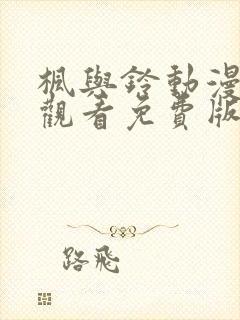 楓與鈴動漫
觀看免費版
路飛